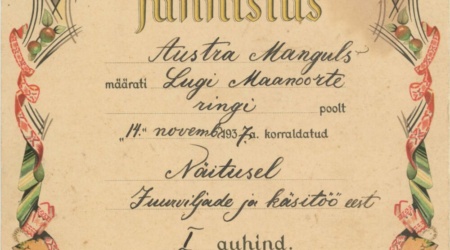 Tunnistus
Austra Manguls-
määrati Lugi Maanoorte
ringi poolt
„14.“ novemb. 1937.a. korraldatud
Näitusel
Juurviljade ja käsitöö eest
I auhind.